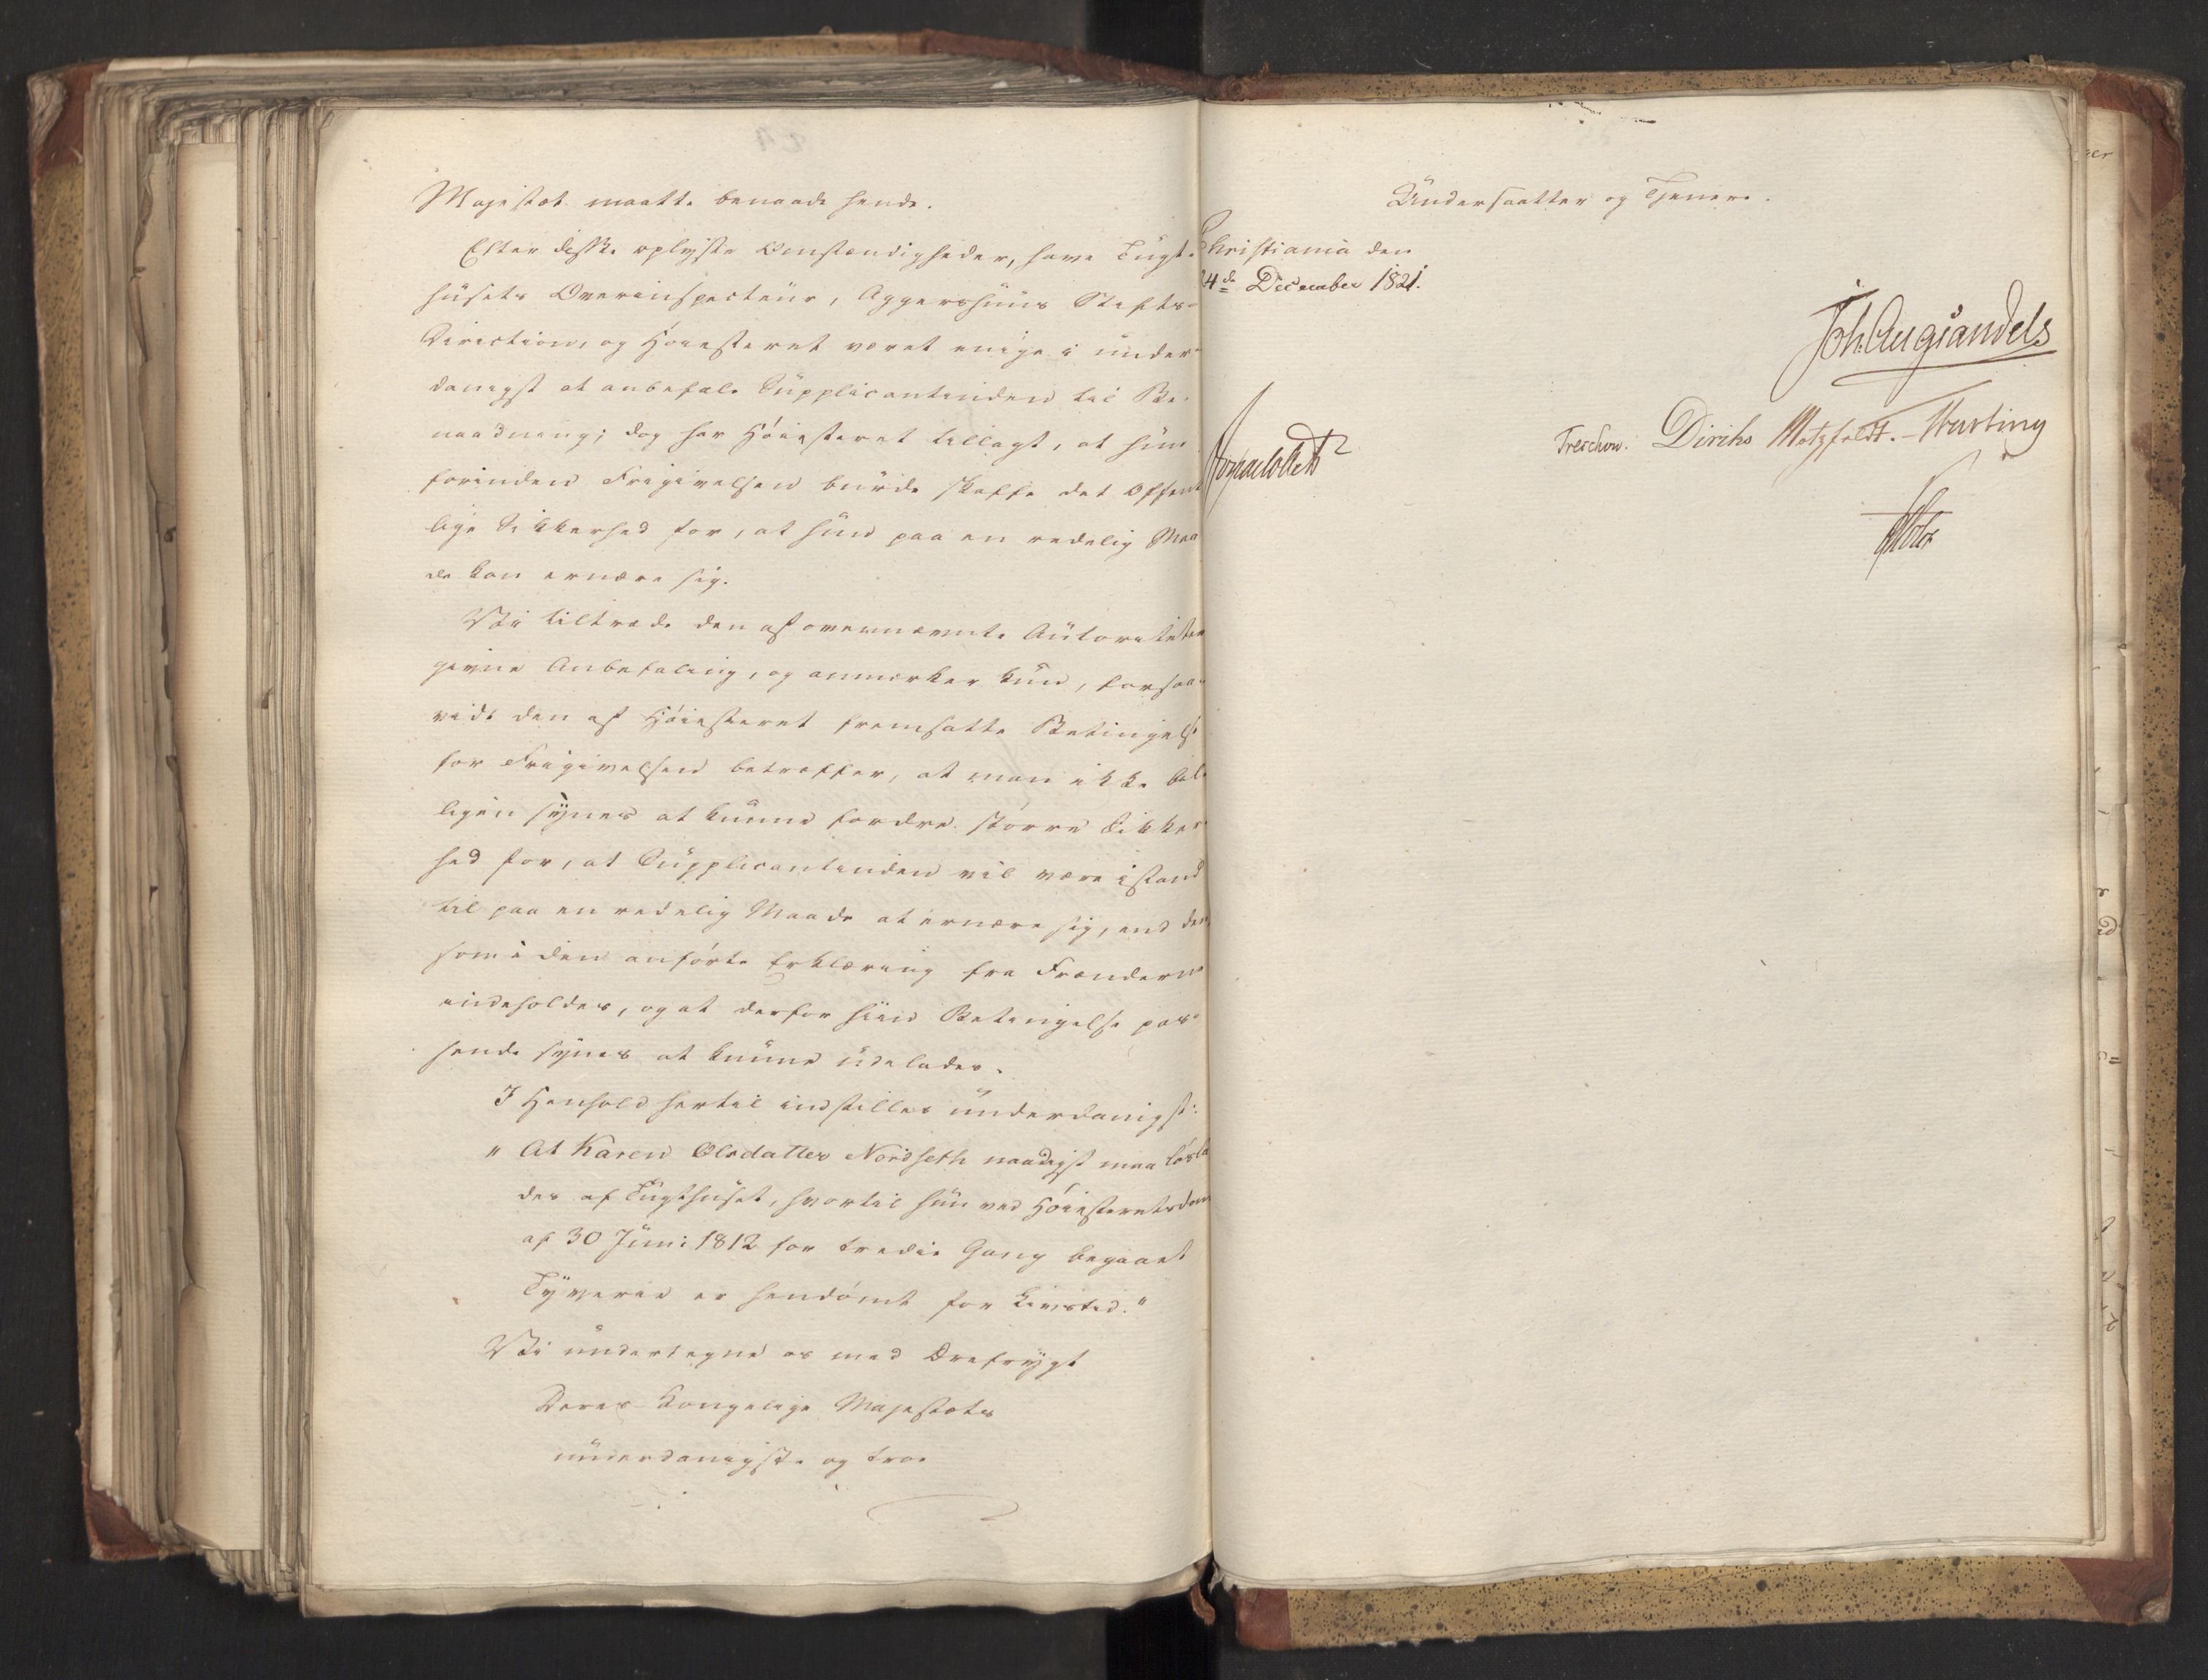 Majestæt maatte benaade hende.
Efter disse oplyste Omstændigheder, have Tugt-
husets Overinspecteur, Aggershuus Stifts-
Direction, og Høiesteret været enige i under-
danigst at anbefale Supplicantinden til Be-
naadning; dog har Høiesteret tillagt, at hun
forinden Frigivelsen burde skaffe det Offent
lige Sikkerhed for, at hun paa en redelig Maa
de kan ernære sig.
Vi tiltræde den af ovennævnte Autoriteter
givne Anbefaling, og anmærker kun, forsaa-
vidt den af Høiesteret fremsatte Betingelse
for Frigivelsen betræffer, at man ikke bil-
ligen synes at kunne fordre større Sikker-
hed for, at Supplicantinden vil være istand
til paa en redelig Maade at ernære sig, end den,
som i den anførte Erklæring fra Frænderne
indeholdes, og at derfor hiin Betingelse pas-
sende synes at kunne udelades.
I Henhold hertil indstilles underdanigst:
" At Karen Olsdatter Nordseth naadigst maa løsla
des af Tugthuset, hvortil hun ved Høiesteretsdom
af 30 Juni 1812 for tredie Gang begaaet
Tyverie er hendømt for Livstid."
Vi undertegne os med Ærefrygt
Deres Kongelige Majestæts
underdanigste og troe
Undersaatter og Tjenere.
Christiania den
24de December 1821.
Joh. Aug Sandels
Treschow. Diriks Motzfeldt.